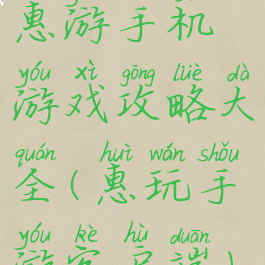 惠游手机
yóu xì gōng lüè dà
游戏攻略大
quán huì wán shǒu
全(惠玩手
yóu kè hù duān
游客户端)